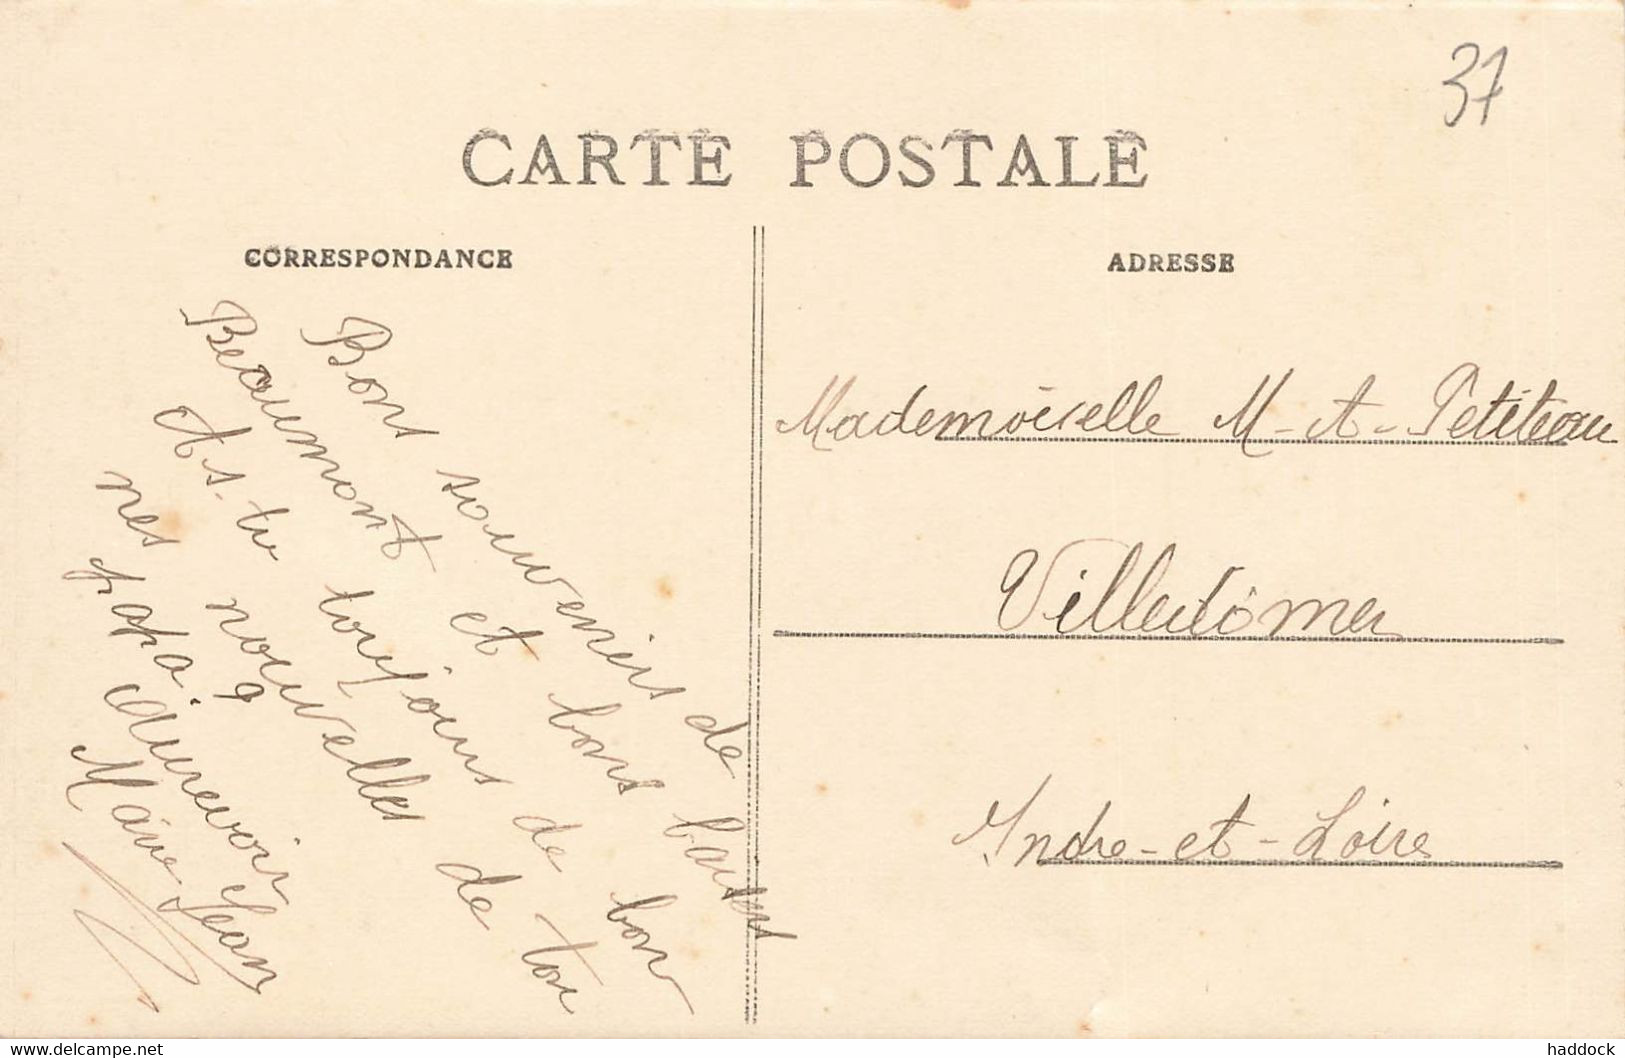 37
CARTE POSTALE
CORRESPONDANCE
ADRESSE
Bons souvenirs de
Beaumont et bons baisers
As-tu toujours de bon
nes nouvelles de ton
papa ? aurevoir
Marie Jean
Mademoiselle M-A-Petiteau
Villedômer
Indre-et-Loire
delcampe.net
haddock